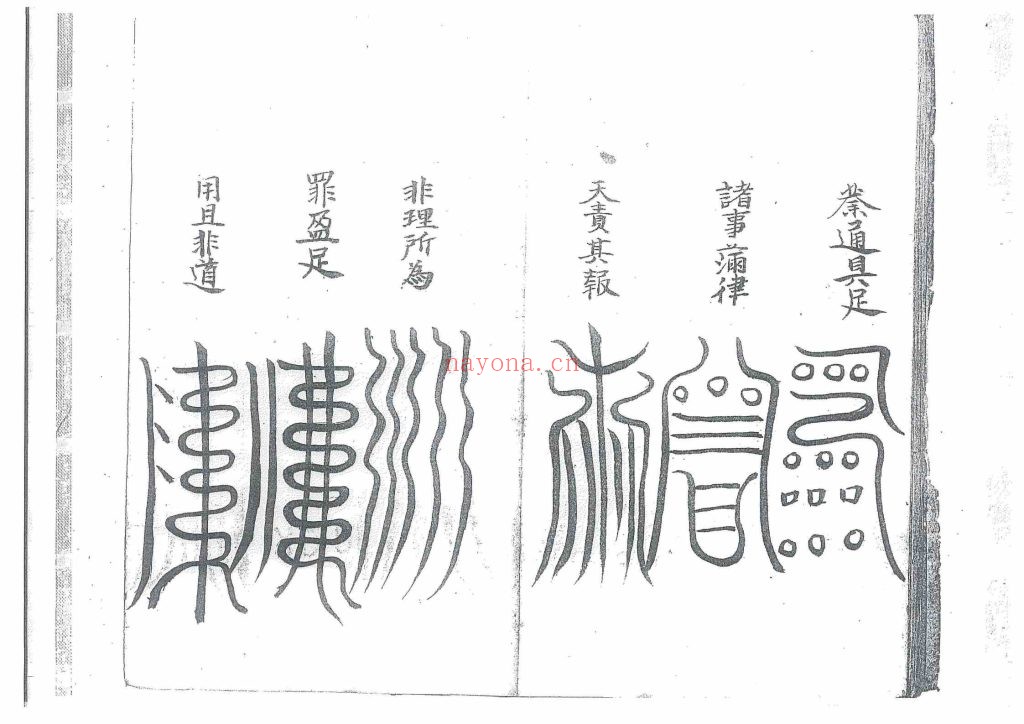 蔡通具足
諸事蒲律
天責其報
非理所為
罪盈足
用且非道
nayona.cn